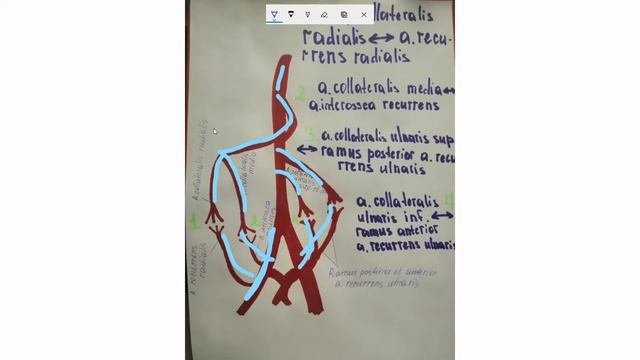 collateralis
radialis ↔ a. recu-
rrens radialis
2 a. collateralis media ↔
a. interossea recurrens
3 a. collateralis ulnaris sup
↔ ramus posterior a. recu
rrens ulnaris
4
a. collateralis
ulnaris inf. ↔
ramus anterior
a. recurrens ulnaris
A. collateralis radialis
1
2
A. recurrens
radialis
Ramus posterior et anterior
a. recurrens ulnaris